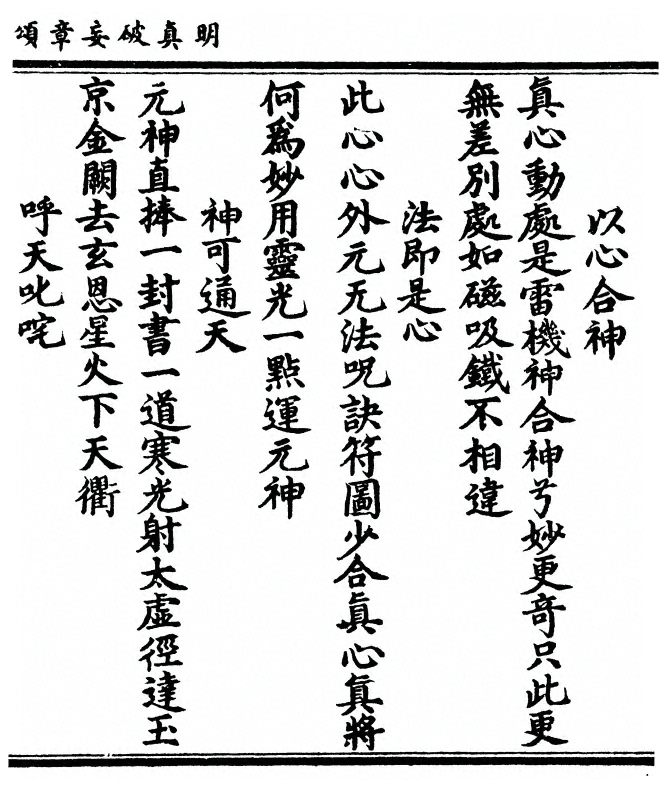 明真破妄章頌
以心合神
真心動處是雷機神合神兮妙更奇只此更
無差別處如磁吸鐵不相違
法即是心
此心心外元无法呪訣符圖少合真心真將
何為妙用靈光一點運元神
神可通天
元神直捧一封書一道寒光射太虛徑達玉
京金闕去玄恩星火下天衢
呼天叱咤